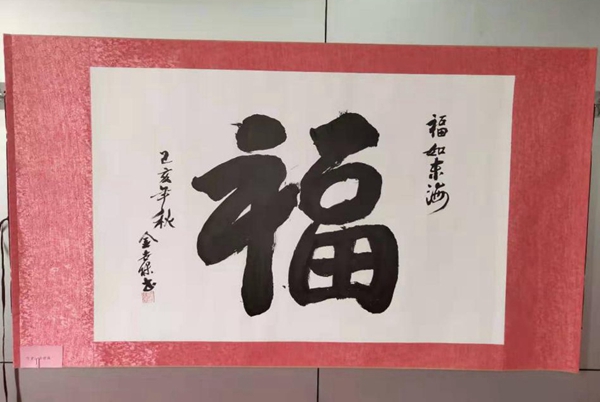 福如东海
福
己亥年秋
金专保书